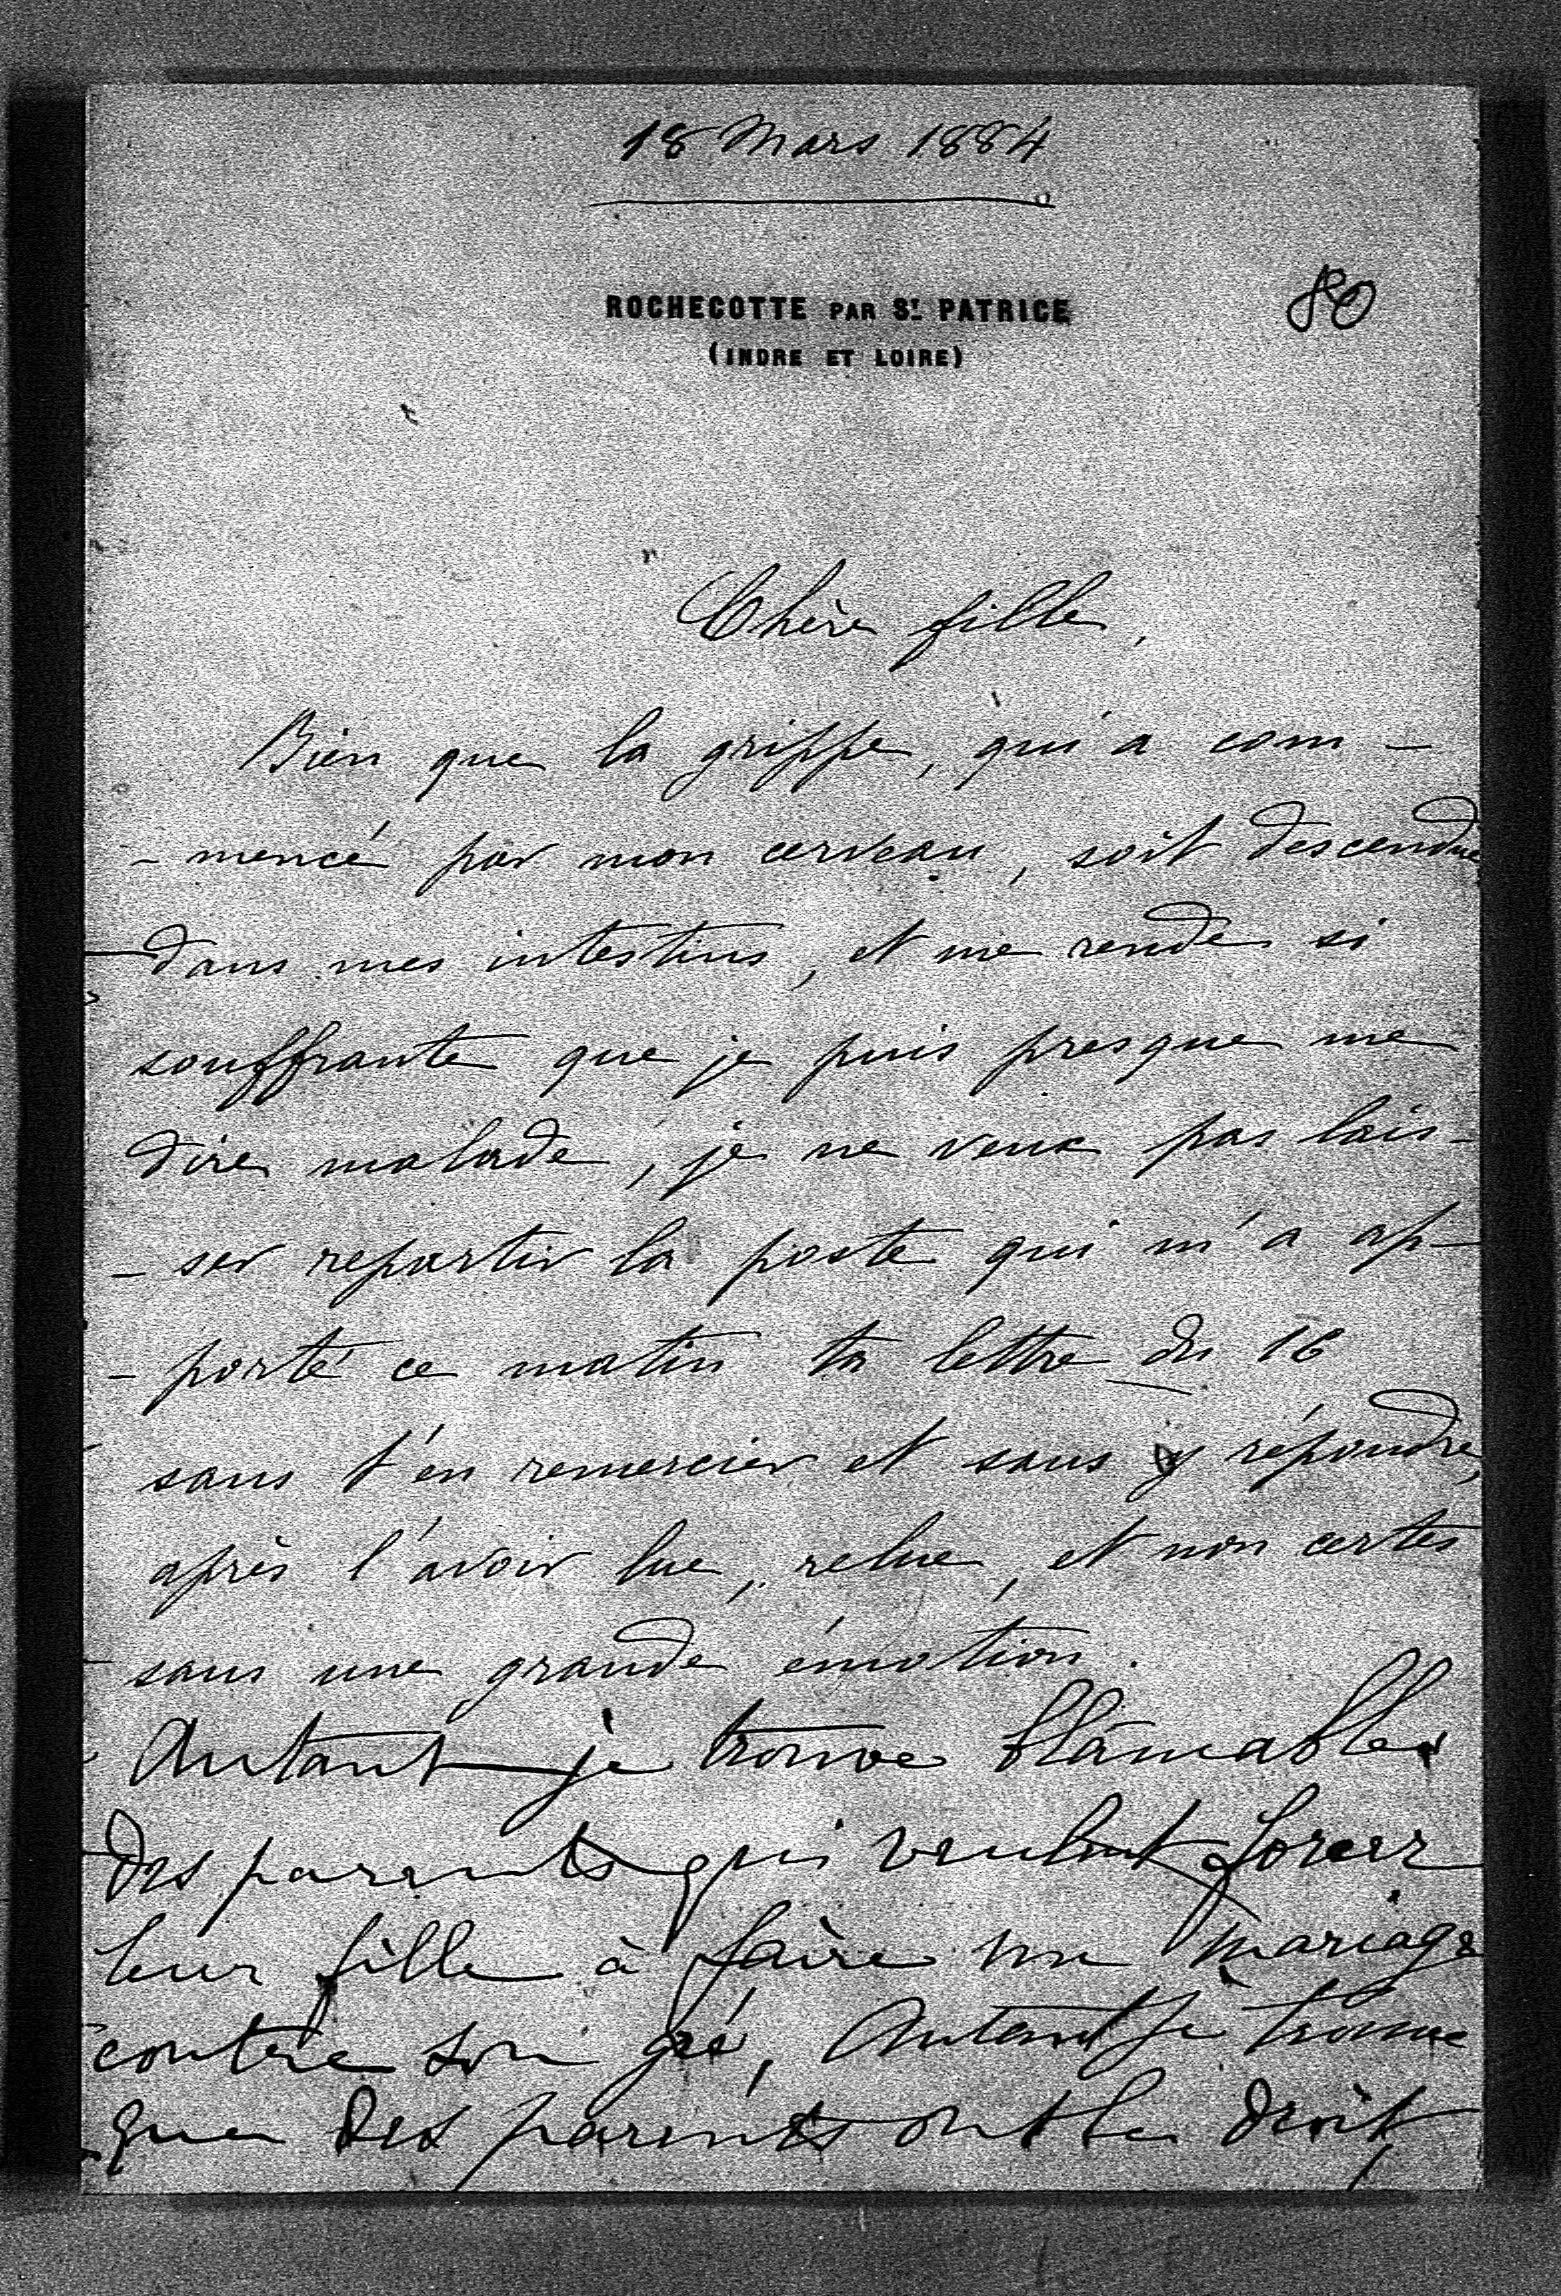 18 Mars 1884
ROCHECOTTE PAR ST. PATRICE
80
(INDRE ET LOIRE)
Chère fille,
Bien que la grippe, qui a com-
-mencé par mon cerveau, soit descendue
dans mes intestins, et me rende si
souffrante que je puis presque me
dire malade, je ne veux pas lais-
-ser repartir la poste qui m'a ap-
-porté ce matin ta lettre du 16
sans t'en remercier et sans y répondre,
après l'avoir lue, relue, et non certes
sans une grande émotion.
Autant je trouve blâmables
des parents qui veulent forcer
leur fille à faire un mariage
contre son gré, Autant je trouve
que des parents ont le droit,